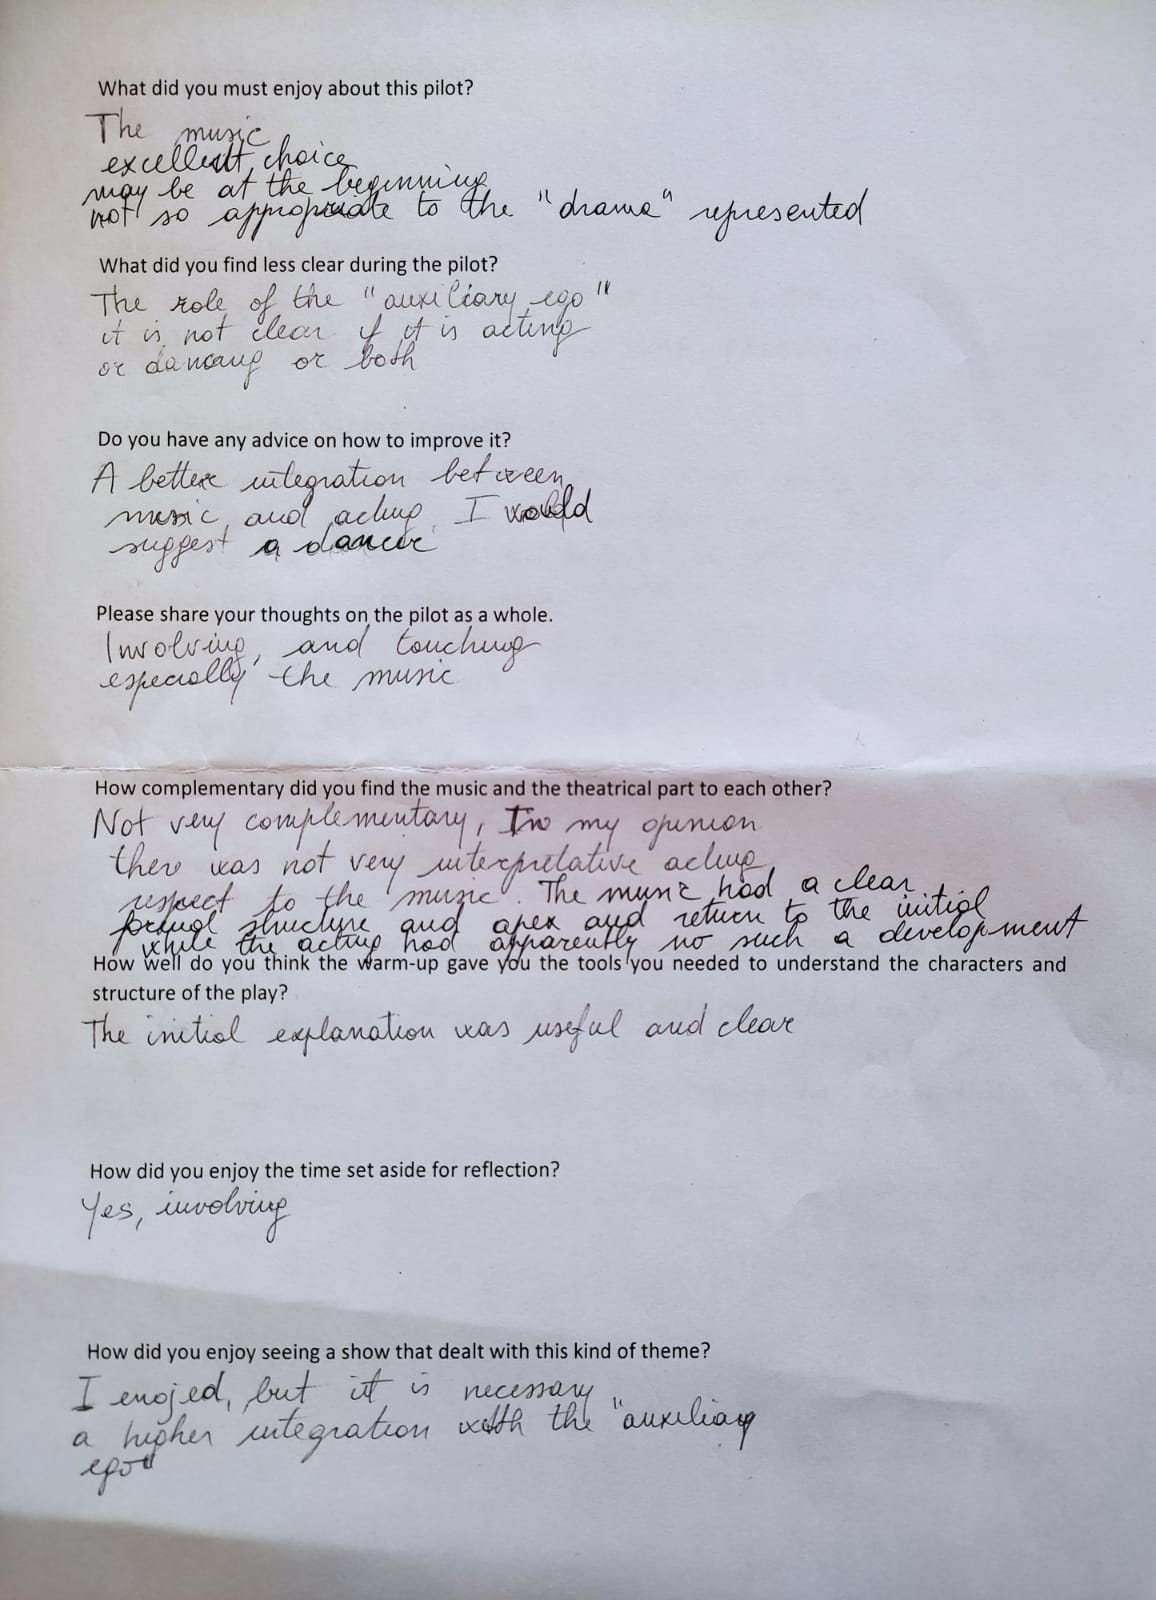 What did you must enjoy about this pilot?
The music
excellent choice
may be at the beginning
not so appropriate to the "drama" represented
What did you find less clear during the pilot?
The role of the "auxiliary ego"
it is not clear if it is acting
or dancing or both
Do you have any advice on how to improve it?
A better integration between
music and acting. I would
suggest a dancer
Please share your thoughts on the pilot as a whole.
Involving, and touching
especially the music
How complementary did you find the music and the theatrical part to each other?
Not very complementary, In my opinion
there was not very interpretative acting
respect to the music. The music had a clear
formal structure and apex and return to the initial
while the acting had apparently no such a development
How well do you think the warm-up gave you the tools you needed to understand the characters and
structure of the play?
The initial explanation was useful and clear
How did you enjoy the time set aside for reflection?
Yes, involving
How did you enjoy seeing a show that dealt with this kind of theme?
I enojed, but it is necessary
a higher integration with the "auxiliary
ego"